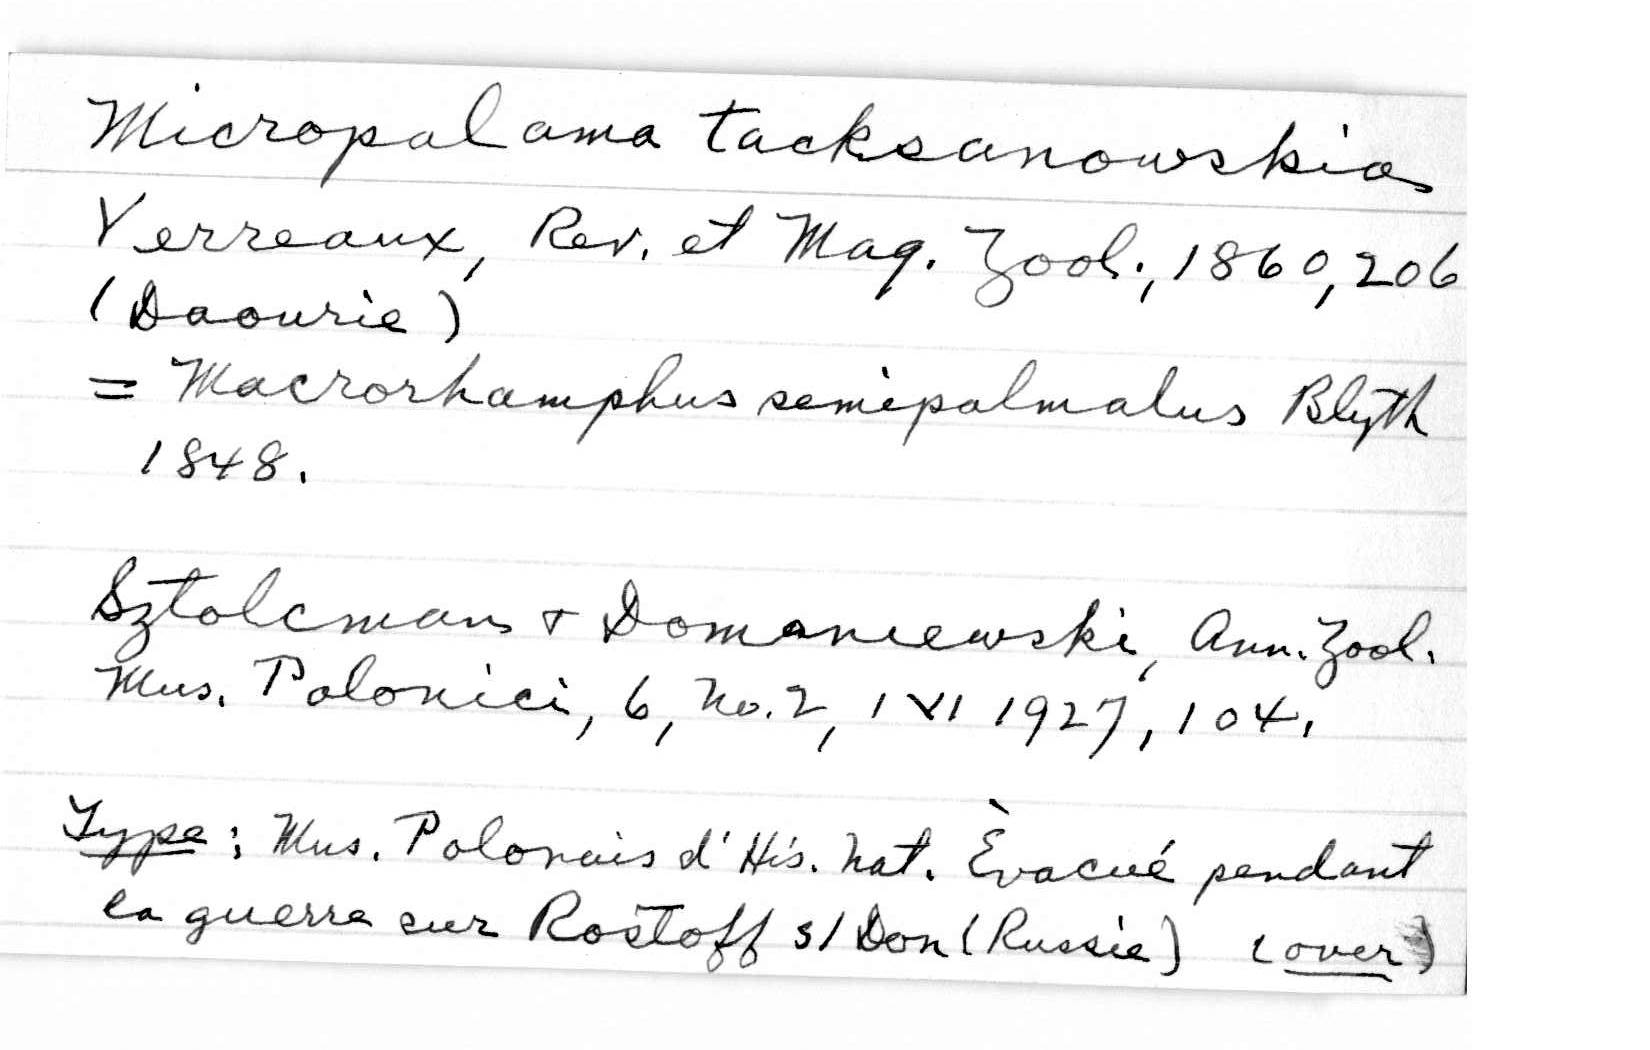 Micropalama tacksanowskia
Verreaux, Rev. et Mag. Zool., 1860, 206
(Daourie)
= Macrorhamphus semipalmatus Blyth
1848.
Sztolcman & Domaniewski, Ann. Zool.
Mus. Polonici, 6, No. 2, 1 VI 1927, 104.
Type: Mus. Polonais d'His. Nat. Èvacué pendant
la guerre sur Rostoff s/Don (Russie) (over)